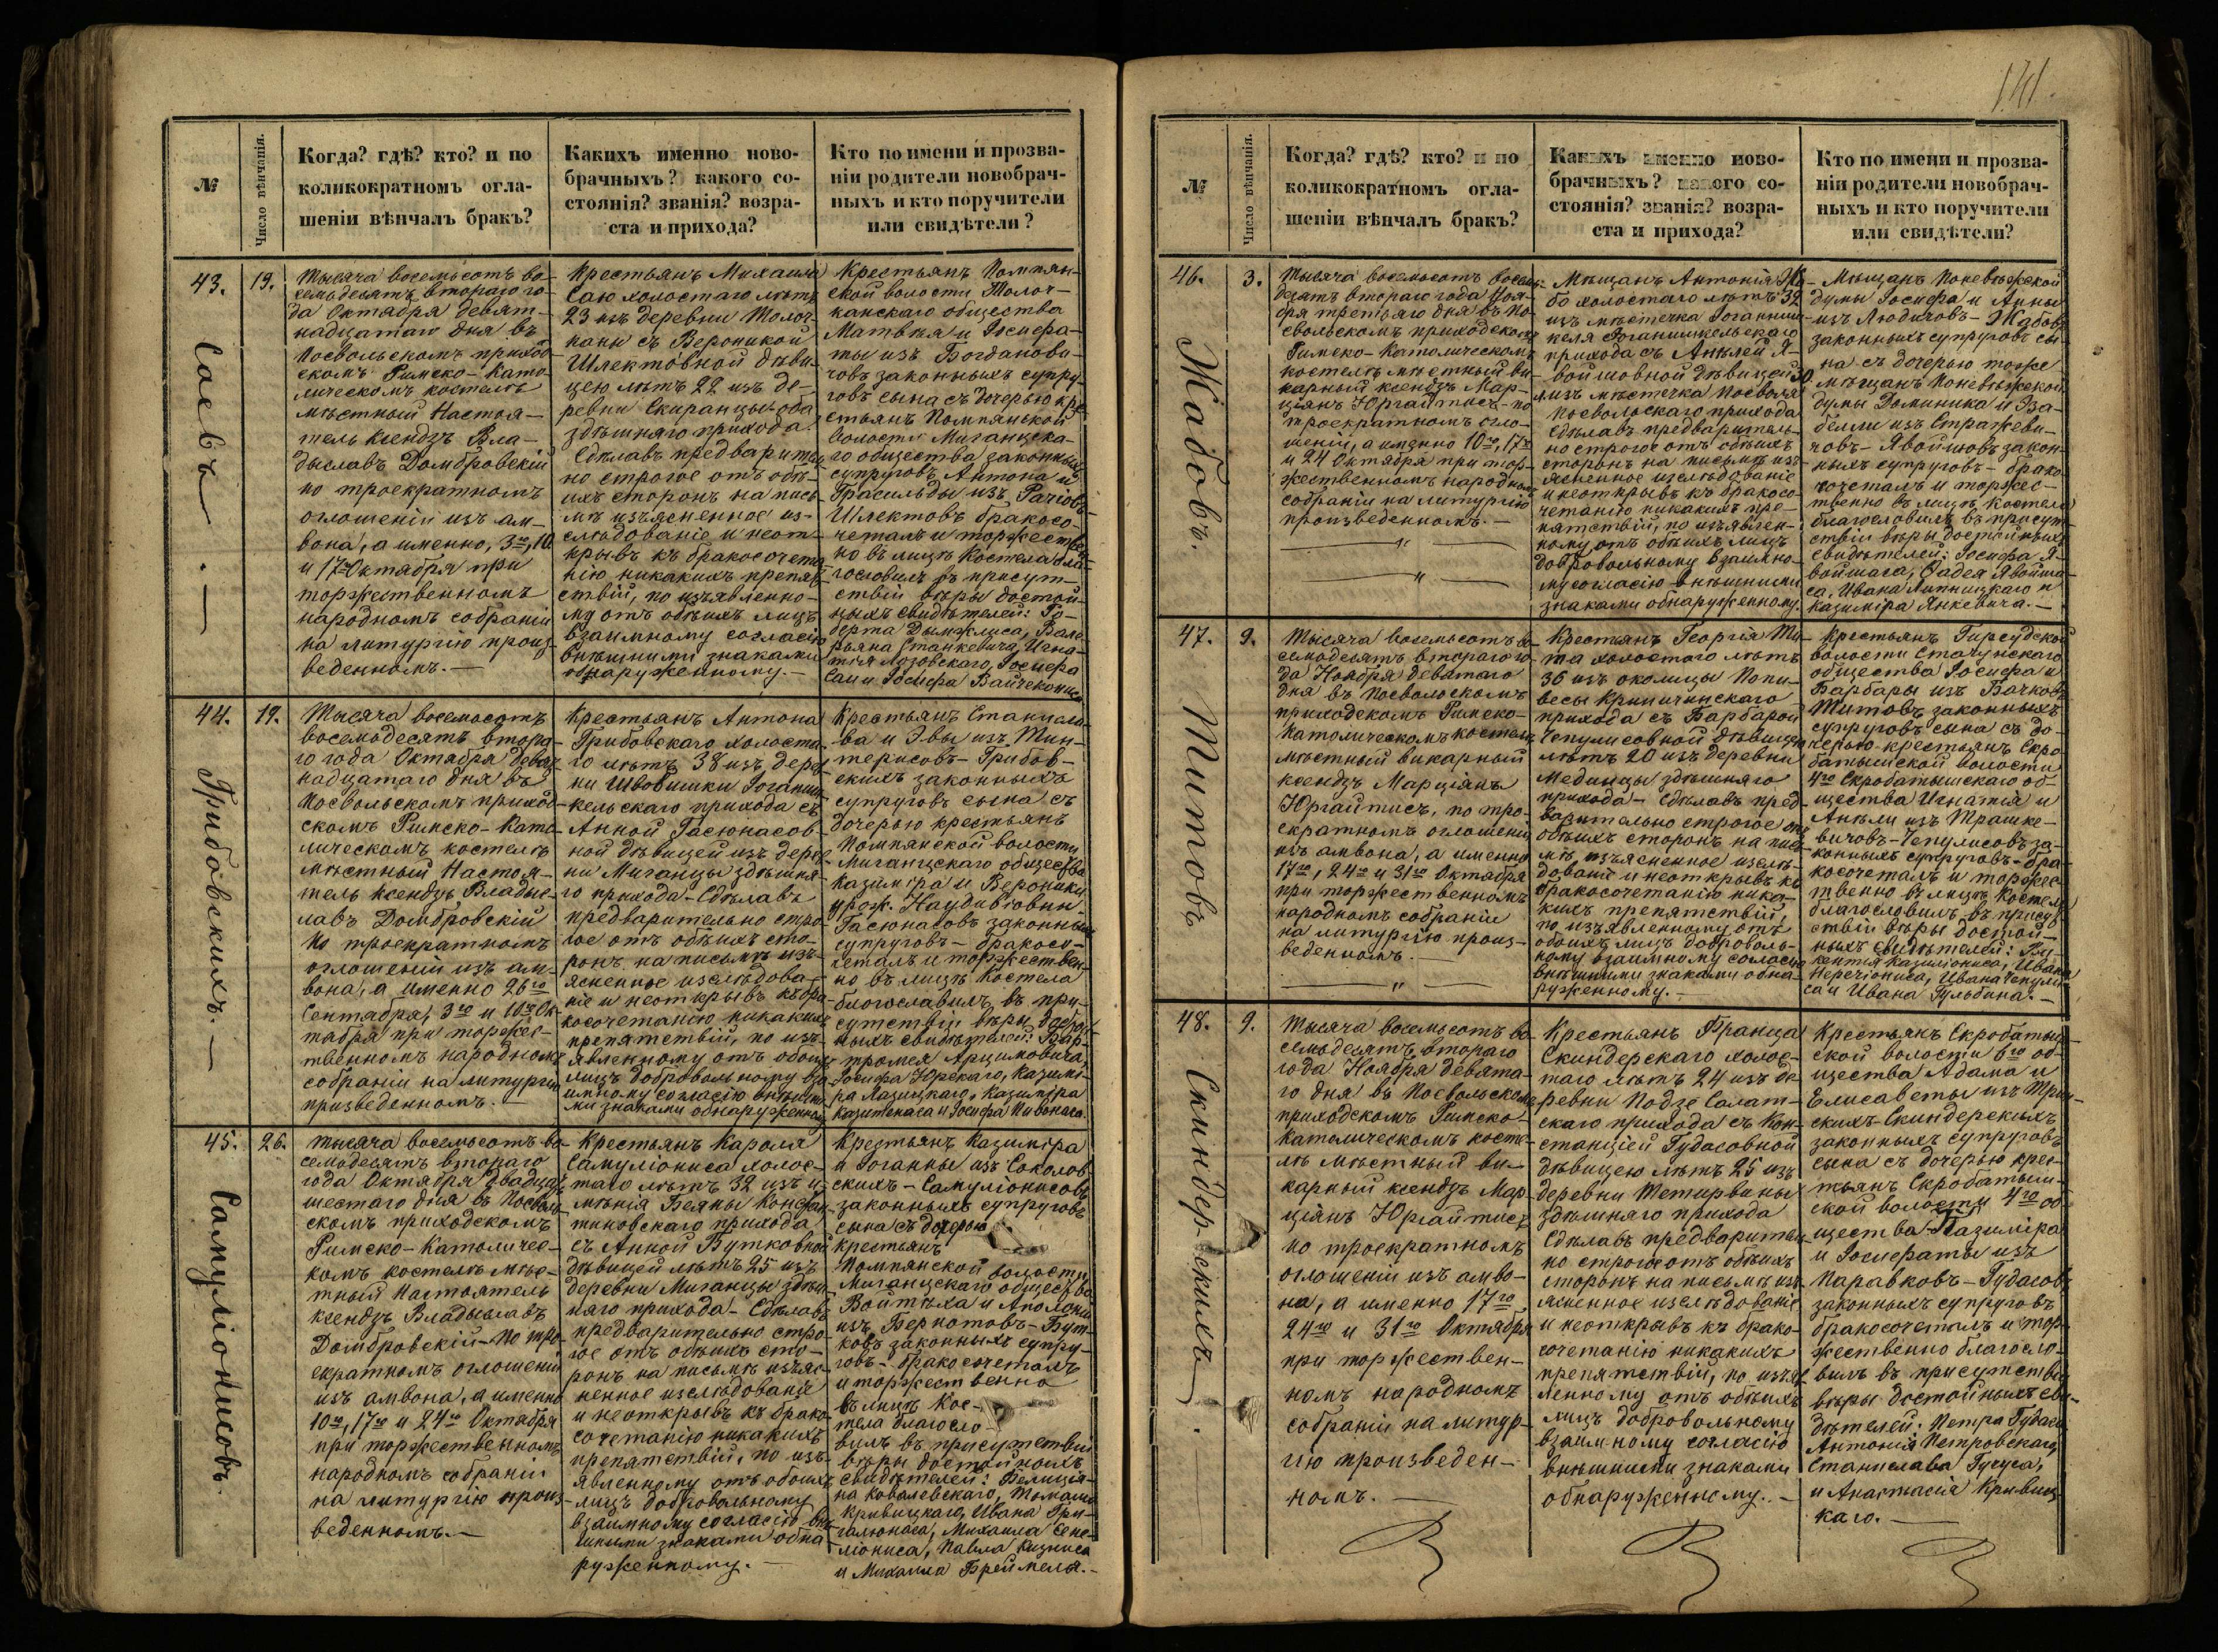 №
Число вѣнчанія.
Когда? гдѣ? кто? и по
коликократномъ огла-
шеніи вѣнчалъ бракъ?
Какихъ именно ново-
брачныхъ? какого со-
стоянія? званія? возра-
ста и прихода?
Кто по имени и прозва-
ніи родители новобрач-
ныхъ и кто поручители
или свидѣтели?
43.
Соевъ
19.
Тысяча восемьсотъ во-
семьдесятъ втораго го-
да Октября девят-
надцатаго дня въ
Посвольскомъ приход-
скомъ Римско-Като-
лическомъ костелѣ
мѣстный Настоя-
тель ксендзъ Вла-
дыславъ Домбровскій
по троекратномъ
оглошеніи изъ ам-
вона, а именно, 3го, 10
и 17го Октября при
торжественномъ
народномъ собраніи
на литургію произ-
веденномъ.—
Крестьянъ Михаила
Саю холостаго лѣтъ
23 изъ деревни Толоч-
каны съ Вероникой
Шлектовной дѣви-
цею лѣтъ 22 изъ де-
ревни Скиранцы оба
здѣшняго прихода.
Сдѣлавъ предварительно
но строгое отъ обѣ-
ихъ сторонъ на пись-
мѣ изъясненное из-
слѣдованіе и неот-
крывъ къ бракосочета-
нію никакихъ препят-
ствій, по изъявленно-
му отъ обѣихъ лицъ
взаимному согласію
внѣшними знаками
обнаруженному.—
Крестьянъ Помпян-
ской волости Толоч-
канскаго общества
Матвѣя и Іосифа-
ты изъ Богданови-
човъ законныхъ супру-
говъ сына съ дочерью кре-
стьянъ Помпянской
волости Миганцска-
го общества законныхъ
супруговъ Антона и
Грасильды изъ
Шлектовъ бракосо-
четалъ и торжествен-
но въ лицѣ Костела бла-
гословилъ въ присут-
ствіи вѣры достой-
ныхъ свидѣтелей: Ро-
берта Вале-
рьяна Станкевича, Игна-
тія Лозовскаго, Іосифа
Саи и Іосифа
44.
Грибовскихъ.—
19.
Тысяча восемьсотъ
восемьдесятъ втора-
го года Октября девят-
надцатаго дня въ
Посвольскомъ приход-
скомъ Римско-Като-
лическомъ костелѣ
мѣстный Настоя-
тель ксендзъ Владыс-
лавъ Домбровскій
по троекратномъ
оглошеніи изъ ам-
вона, а именно 26го
Сентября, 3го и 10го Ок-
тября при торжес-
твенномъ народномъ
собраніи на литургію
призведенномъ.—
Крестьянъ Антона
Грибовскаго холоста-
го лѣтъ 38 изъ дерев-
ни Швобишки Іоганиш-
кельскаго прихода съ
Анной Гасюнасов-
ной дѣвицей изъ дерев-
ни Миганцы здѣшня-
го прихода—Сдѣлавъ
предварительно стро-
гое отъ обѣихъ сто-
ронъ на письмѣ изъ-
ясненное изслѣдова-
ніе и неоткрывъ къ бра-
косочетанію никакихъ
препятствій, по изъ-
явленному отъ обоихъ
лицъ добровольному вза-
имному согласію внѣшни-
ми знаками обнаруженному
Крестьянъ Станисла-
ва и Эвы изъ
Грибов-
скихъ законныхъ
супруговъ сына съ
дочерью крестьянъ
Помпянской волости
Миганцскаго общества
Казиміра и Вероники
урож.
Гасюнасовъ законныхъ
супруговъ—бракосо-
четалъ и торжествен-
но въ лицѣ Костела
благославилъ въ при-
сутствіи вѣры достой-
ныхъ свидѣтелей: Вар-
тромея Арцимовича,
Іосифа Юрскаго, Казимі-
ра Лазицкаго, Казиміра
и Іосифа
45.
Самуліонисовъ.
26.
Тысяча восемьсотъ во-
семьдесятъ втораго
года Октября двадцать
шестаго дня въ Посволь-
скомъ приходскомъ
Римско-Католичес-
комъ костелѣ мѣс-
тный Настоятель
ксендзъ Владыславъ
Домбровскій—По трое-
екратномъ оглошеніи
изъ амвона, а именно
10го, 17го и 24го Октября
при торжественномъ
народномъ собраніи
на литургію произ-
веденномъ.—
Крестьянъ Кароля
Самуліониса холос-
таго лѣтъ 32 изъ и-
мѣнія Беяны Констан-
тиновскаго прихода
съ Анной Бутковной
дѣвицей лѣтъ 25 изъ
деревни Миганцы здѣш-
няго прихода—Сдѣлавъ
предварительно стро-
гое отъ обѣихъ сто-
ронъ на письмѣ изъяс-
ненное изслѣдованіе
и неоткрывъ къ брако-
сочетанію никакихъ
препятствій, по изъ-
явленному отъ обоихъ
лицъ добровольному
взаимному согласію внѣ-
шними знаками обна-
руженному.—
Крестьянъ Казиміра
и Іоганны изъ Соколов-
скихъ—Самуліонисовъ
законныхъ супруговъ
сына съ дочерью
крестьянъ
Помпянской волости
Миганцскаго общества
Войтѣха и Аполоніи
изъ Бернотовъ—Бут-
ковъ законныхъ супру-
говъ—бракосочеталъ
и торжественно
въ лицѣ Кос-
тела благосло-
вилъ въ присутствіи
вѣры достойныхъ
свидѣтелей: Фелиція-
на Ковалевскаго, Томаша
Кривицкаго, Ивана Гри-
галюнаса, Михаила
Павла
и Михаила
141.
№
Число вѣнчанія.
Когда? гдѣ? кто? и по
коликократномъ огла-
шеніи вѣнчалъ бракъ?
Какихъ именно ново-
брачныхъ? какого со-
стоянія? званія? возра-
ста и прихода?
Кто по имени и прозва-
ніи родители новобрач-
ныхъ и кто поручители
или свидѣтели?
46.
Жабовъ.
3.
Тысяча восемьсотъ восемь-
десятъ втораго года Ноя-
бря третьяго дня въ По-
свольскомъ приходскомъ
Римско-Католическомъ
костелѣ мѣстный ви-
карный ксендзъ Мар-
ціянъ Юргайтисъ—по
троекратномъ огло-
шеніи, а именно 10го, 17го
и 24 Октября при тор-
жественномъ народномъ
собраніи на литургію
произведенномъ.—
Мѣщанъ Антонія Жа-
бо холостаго лѣтъ 32
изъ мѣстечка Іоганиш-
келя Іоганишкельскаго
прихода съ Анѣлей Я-
войшовной дѣвицей 30
л. изъ мѣстечка Посволя
Посвольскаго прихода
Сдѣлавъ предваритель-
но строгое отъ обѣихъ
сторонъ на письмѣ изъ-
ясненное изслѣдованіе
и неоткрывъ къ бракосо-
четанію никакихъ пре-
пятствій, по изъявлен-
ному отъ обѣихъ лицъ
добровольному взаимно-
му согласію внѣшними
знаками обнаруженному.
Мѣщанъ Поневѣжской
думы Іосифа и Анны
изъ Людиховъ—Жабовъ
законныхъ супруговъ сы-
на съ дочерью тоже
мѣщанъ Поневѣжской
думы Доминика и Иза-
белли изъ Стражеви-
човъ—Явойшовъ закон-
ныхъ супруговъ—брако-
сочеталъ и торжес-
твенно въ лицѣ Костела
благословилъ въ присут-
ствіи вѣры достойныхъ
свидѣтелей: Іосифа Я-
войшаса, Фадея Явойша-
са, Ивана Липницкаго и
Казиміра Янкевича.—
47.
Титовъ
9.
Тысяча восемьсотъ во-
семьдесятъ втораго го-
да Ноября девятаго
дня въ Посвольскомъ
приходскомъ Римско-
Католическомъ костелѣ
мѣстный викарный
ксендзъ Марціянъ
Юргайтисъ, по тро-
екратномъ оглошеніи
изъ амвона, а именно
17го, 24го и 31го Октября
при торжественномъ
народномъ собраніи
на литургію произ-
веденномъ.—
Крестьянъ Георгія Ти-
та холостаго лѣтъ
36 изъ околицы Попи-
весы Криничинскаго
прихода съ Барбарой
Чепулисовной дѣвицею
лѣтъ 20 изъ деревни
Мединцы здѣшняго
прихода—Сдѣлавъ пред-
варительно строгое отъ
обѣихъ сторонъ на пись-
мѣ изъясненное изслѣ-
дованіе и неоткрывъ къ
бракосочетанію ника-
кихъ препятствій,
по изъявленному отъ
обоихъ лицъ доброволь-
ному взаимному согласію
внѣшними знаками обна-
руженному.—
Крестьянъ Гирсудской
волости Стачунскаго
общества Іосифа и
Барбары изъ Бачковъ
Титовъ законныхъ
супруговъ сына съ до-
черью крестьянъ Скро-
батышской волости
4го Скробатышскаго об-
щества Игнатія и
Анѣли изъ Трашке-
вичовъ—Чепулисовъ за-
конныхъ супруговъ—бра-
косочеталъ и торжес-
твенно въ лицѣ Костела
благословилъ въ присут-
ствіи вѣры достой-
ныхъ свидѣтелей: Ви-
кентія Казиліониса, Ивана
Нерчіониса, Ивана Чепули-
са и Ивана Гульбина.—
48.
Скиндерскихъ.
9.
Тысяча восемьсотъ во-
семьдесятъ втораго
года Ноября девята-
го дня въ Посвольскомъ
приходскомъ Римско-
Католическомъ косте-
лѣ мѣстный ви-
карный ксендзъ Мар-
ціянъ Юргайтисъ
по троекратномъ
оглошеніи изъ амво-
на, а именно 17го,
24го и 31го Октября
при торжествен-
номъ народномъ
собраніи на литур-
гію произведен-
номъ.—
Крестьянъ Франца
Скиндерскаго холос-
таго лѣтъ 24 изъ де-
ревни Подзе Салат-
скаго прихода съ Кон-
станціей Гудасовной
дѣвицею лѣтъ 25 изъ
деревни Тетирвины
здѣшняго прихода
Сдѣлавъ предваритель-
но строгое отъ обѣихъ
сторонъ на письмѣ изъ-
ясненное изслѣдованіе
и неоткрывъ къ брако-
сочетанію никакихъ
препятствій, по изъяв-
ленному отъ обѣихъ
лицъ добровольному
взаимному согласію
внѣшними знаками
обнаруженному.—
Крестьянъ Скробатыш-
ской волости 6го об-
щества Адама и
Елисаветы изъ
Скиндерскихъ
законныхъ супруговъ
сына съ дочерью крес-
тьянъ Скробатыш-
ской волости 4го об-
щества Казиміра
и Іосифаты изъ
Паравковъ—Гудасовъ
законныхъ супруговъ
бракосочеталъ и тор-
жественно благосло-
вилъ въ присутствіи
вѣры достойныхъ сви-
дѣтелей: Петра Гудаса,
Антонія Петровскаго,
Станислава Гучуса,
и Анастасія Кривиц-
каго.—